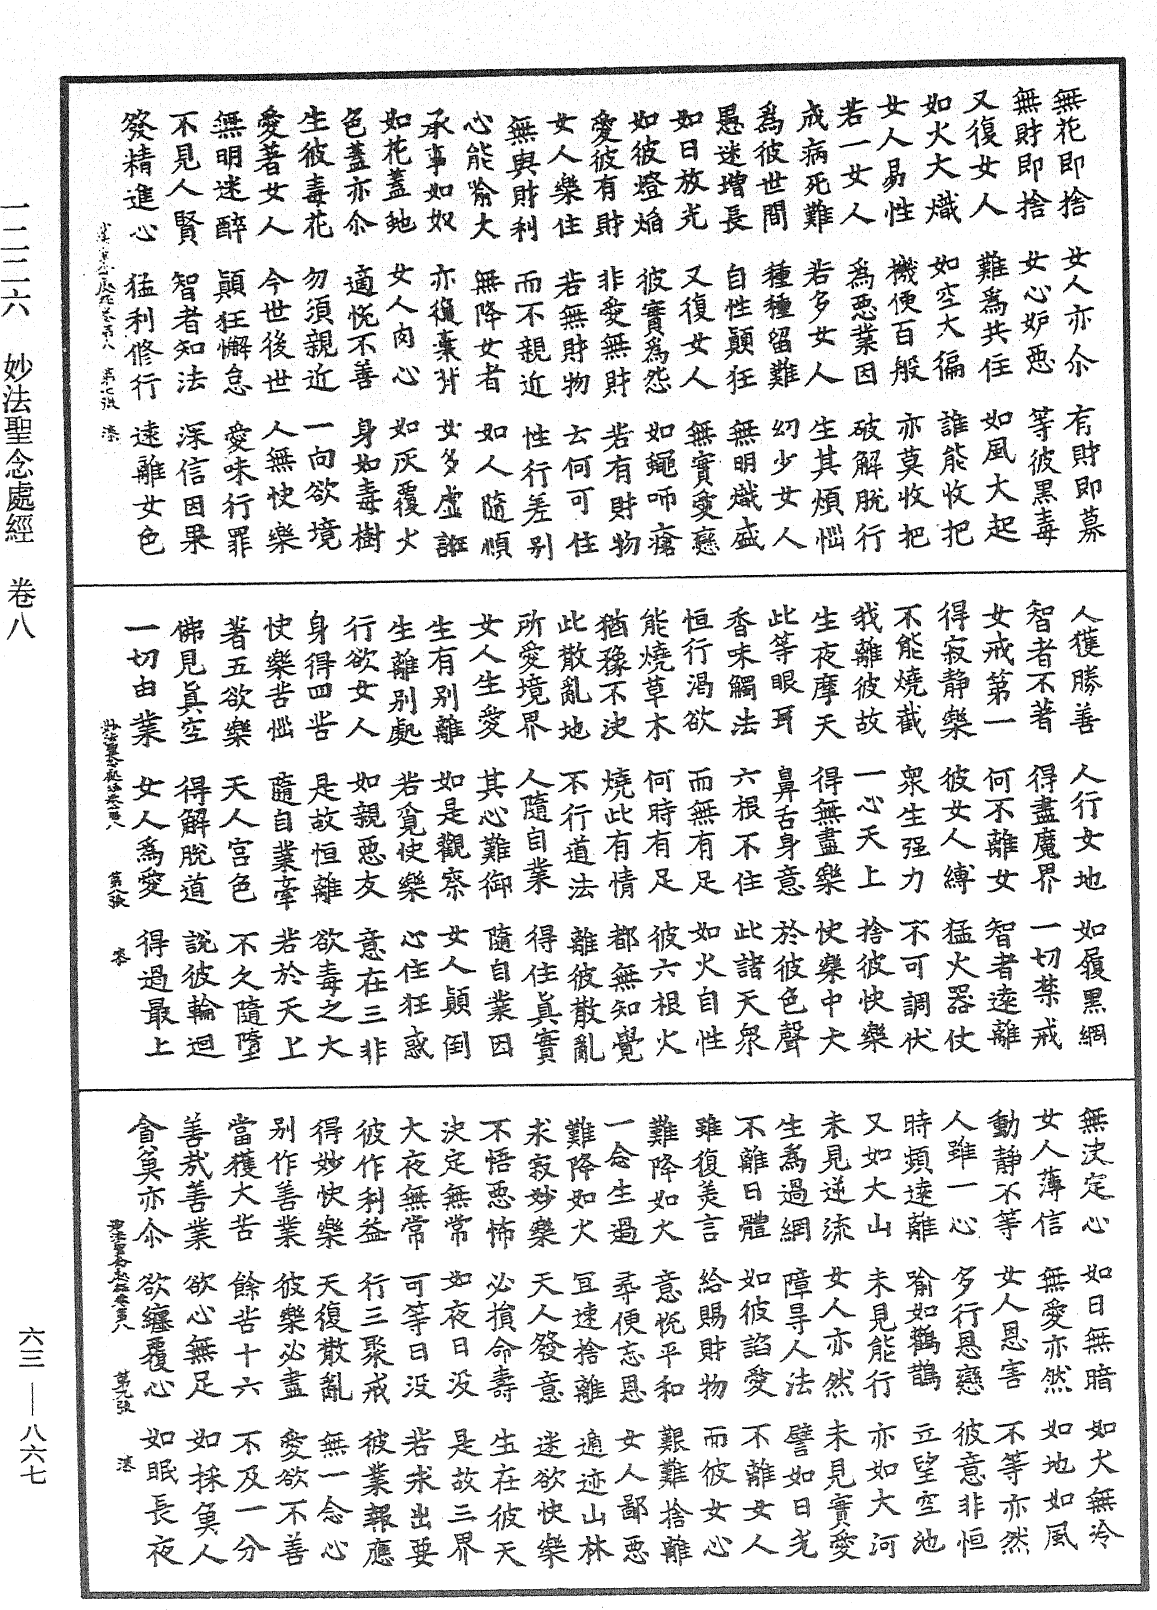 無花即捨 女人亦尒 有財即慕
無財即捨 女心妒惡 等彼黑毒
又復女人 難爲共住 如風大起
如火大熾 如空大徧 誰能收把
女人易性 機便百般 亦莫收把
若一女人 爲惡業因 破解脫行
戒病死難 若多女人 生其煩惱
爲彼世間 種種留難 幻少女人
愚迷增長 自性顛狂 無明熾盛
如日放光 又復女人 無實愛戀
如彼燈焰 彼實爲怨 如蠅咂瘡
愛彼有財 非愛無財 若有財物
女人樂住 若無財物 云何可住
無與財利 而不親近 性行差别
心能喻大 無降女者 如人隨順
承事如奴 亦復棄背 女多虛誑
如花蓋虵 女人肉心 如灰覆火
色蓋亦尒 適悅不善 身如毒樹
生彼毒花 勿須親近 一向欲境
愛著女人 今世後世 人無快樂
無明迷醉 顛狂懈怠 愛味行罪
不見人賢 智者知法 深信因果
發精進心 猛利修行 遠離女色
人獲勝善 人行女地 如履黑網
智者不著 得盡魔界 一切禁戒
女戒第一 何不離女 智者遠離
得寂靜樂 彼女人縛 猛火器仗
不能燒截 衆生强力 不可調伏
我離彼故 一心天上 捨彼快樂
生夜摩天 得無盡樂 快樂中大
此等眼耳 鼻舌身意 於彼色聲
香味觸法 六根不住 此諸天衆
恒行渴欲 而無有足 如火自性
能燒草木 何時有足 彼六根火
猶豫不決 燒此有情 都無知覺
此散亂地 不行道法 離彼散亂
所愛境界 人隨自業 得住眞實
女人生愛 其心難御 隨自業因
生有别離 如是觀察 女人顛倒
生離别處 若覓快樂 心住狂惑
行欲女人 如親惡友 意在三非
身得四苦 是故恒離 欲毒之大
快樂苦惱 隨自業牽 若於天上
著五欲樂 天人宮色 不久隨墮
佛見眞空 得解脫道 說彼輪迴
一切由業 女人爲愛 得過最上
無決定心 如日無暗 如火無冷
女人薄信 無愛亦然 如地如風
動靜不等 女人恩害 不等亦然
人雖一心 多行恩戀 彼意非恒
時頻遠離 喻如鸛鵲 立望空池
又如大山 未見能行 亦如大河
未見逆流 女人亦然 未見實愛
生爲過網 障㝵人法 譬如日光
不離日體 如彼諂愛 不離女人
雖復美言 給賜財物 而彼女心
難降如火 意悅平和 艱難捨離
一念生過 尋便忘恩 女人鄙惡
難降如火 宜速捨離 遁迹山林
求寂妙樂 天人發意 迷欲快樂
不悟惡怖 必損命壽 生在彼天
決定無常 如夜日没 是故三界
大夜無常 可等日没 若求出要
彼作利益 行三聚戒 彼業報應
得妙快樂 天復散亂 無一念心
别作善業 彼樂必盡 愛欲不善
當獲大苦 餘苦十六 不及一分
善哉善業 欲心無足 如採䔥人
貪䔥亦尒 欲纏覆心 如眠長夜
妙法聖念處經卷第八 第七張 漆
妙法聖念處經卷第八 第八張 漆
妙法聖念處經卷第八 第九張 漆
一二二六 妙法聖念處經 卷八
六三—八六七